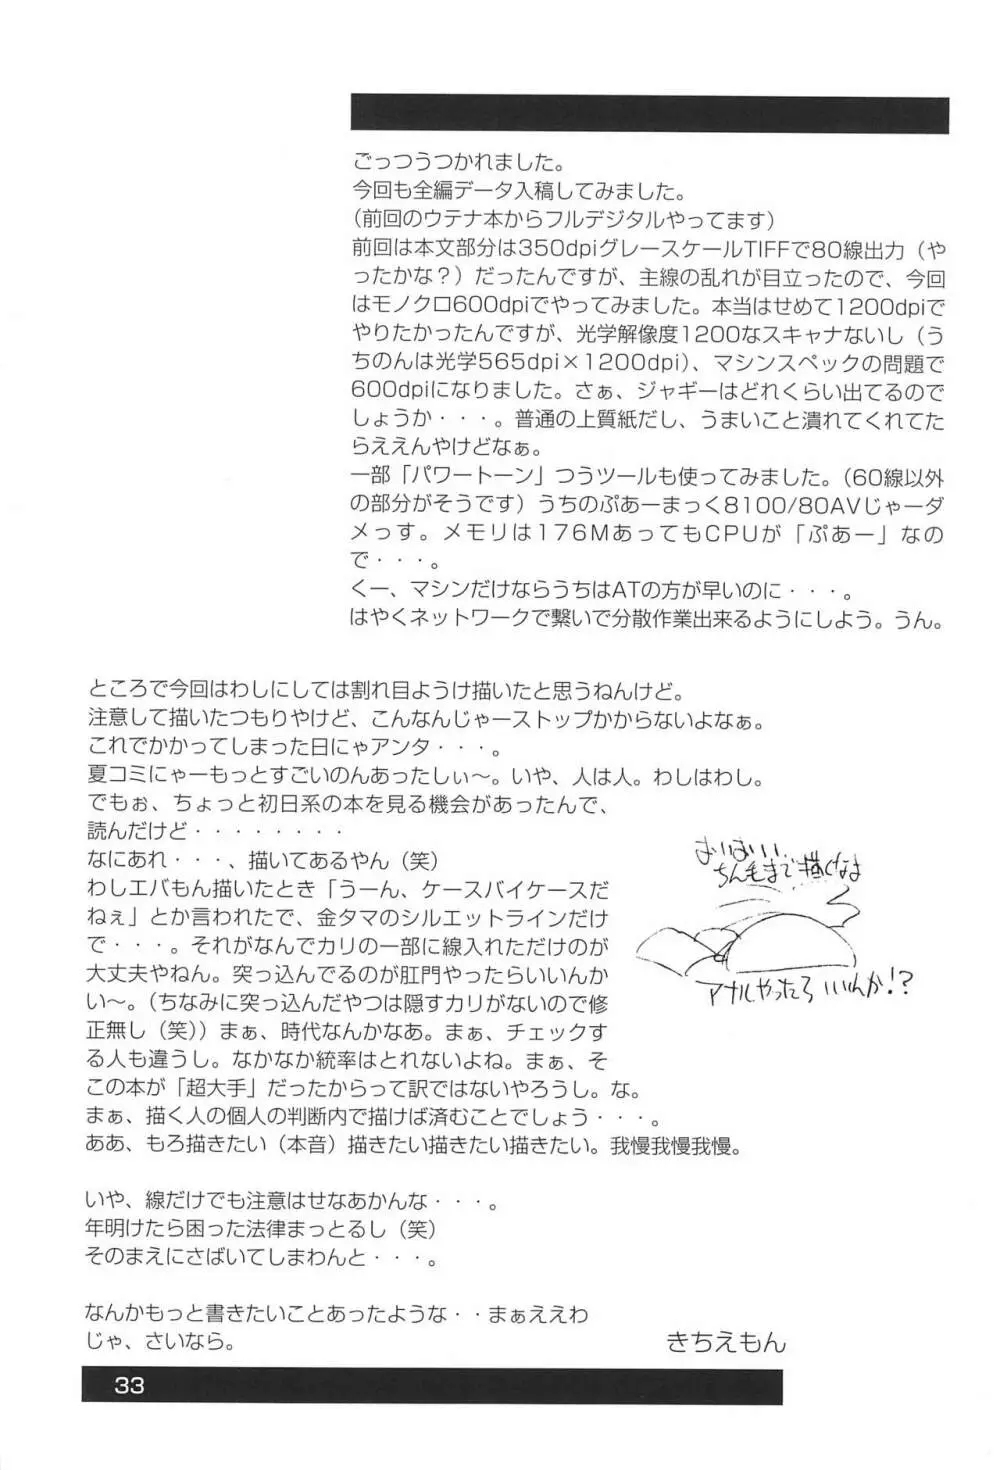 ごっつうつかれました。
今回も全編データ入稿してみました。
（前回のウテナ本からフルデジタルやってます）
前回は本文部分は350dpiグレースケールTIFFで80線出力（や
ったかな？）だったんですが、主線の乱れが目立ったので、今回
はモノクロ600dpiでやってみました。本当はせめて1200dpiで
やりたかったんですが、光学解像度1200なスキャナないし（う
ちのんは光学565dpi×1200dpi）、マシンスペックの問題で
600dpiになりました。さぁ、ジャギーはどれくらい出てるので
しょうか・・・。普通の上質紙だし、うまいこと潰れてくれてた
らええんやけどなぁ。
一部「パワートーン」つうツールも使ってみました。（60線以外
の部分がそうです）うちのぷあーまっく8100/80AVじゃーダ
メっす。メモリは176MあってもCPUが「ぷあー」なの
で・・・。
くー、マシンだけならうちはATの方が早いのに・・・。
はやくネットワークで繋いで分散作業出来るようにしよう。うん。
ところで今回はわしにしては割れ目ようけ描いたと思うねんけど。
注意して描いたつもりやけど、こんなんじゃーストップかからないよなぁ。
これでかかってしまった日にゃアンタ・・・。
夏コミにゃーもっとすごいのんあったしぃ〜。いや、人は人。わしはわし。
でもぉ、ちょっと初日系の本を見る機会があったんで、
読んだけど・・・・・・・・
なにあれ・・・、描いてあるやん（笑）
わしエバもん描いたとき「うーん、ケースバイケースだ
ねぇ」とか言われたで、金タマのシルエットラインだけ
で・・・。それがなんでカリの一部に線入れただけのが
大丈夫やねん。突っ込んでるのが肛門やったらいいんか
い〜。（ちなみに突っ込んだやつは隠すカリがないので修
正無し（笑））まぁ、時代なんかなあ。まぁ、チェックす
る人も違うし。なかなか統率はとれないよね。まぁ、そ
この本が「超大手」だったからって訳ではないやろうし。な。
まぁ、描く人の個人の判断内で描けば済むことでしょう・・・。
ああ、もろ描きたい（本音）描きたい描きたい描きたい。我慢我慢我慢。
おいおいい・・
ちん毛まで描くなよ
アナルやったらいいんか!?
いや、線だけでも注意はせなあかんな・・・。
年明けたら困った法律まっとるし（笑）
そのまえにさばいてしまわんと・・・。
なんかもっと書きたいことあったような・・まぁええわ
じゃ、さいなら。
きちえもん
33